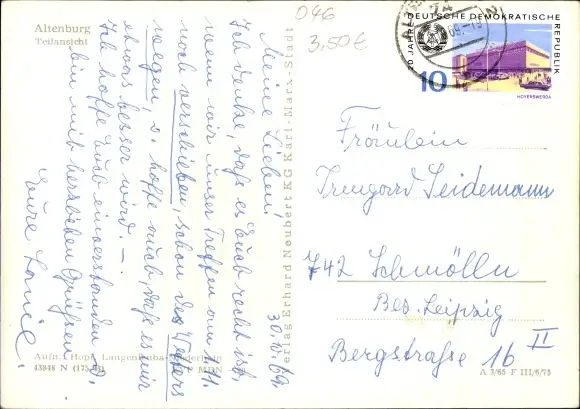 Altenburg
Teilansicht
046
3,50€
20 JAHRE DEUTSCHE DEMOKRATISCHE REPUBLIK
10
HOYERSWERDA
30.10.69.
Meine Lieben!
Ich denke, daß es Euch recht ist,
wenn wir unser Treffen am 1.11.
noch verschieben, schon des
wegen, u. hoffe auch, daß es mir
etwas besser wird. –
Ich hoffe Euch einverstanden u.
bin mit herzlichen Grüßen
Eure
Verlag Erhard Neubert KG Karl-Marx-Stadt
Fräulein
Irmgard Seidemann
742 Schmölln
Bez. Leipzig
Bergstraße 1b II
Aufn.: Hopf, Langenleuba-Niederhain
43848 N
A 3/65 F III/6/75